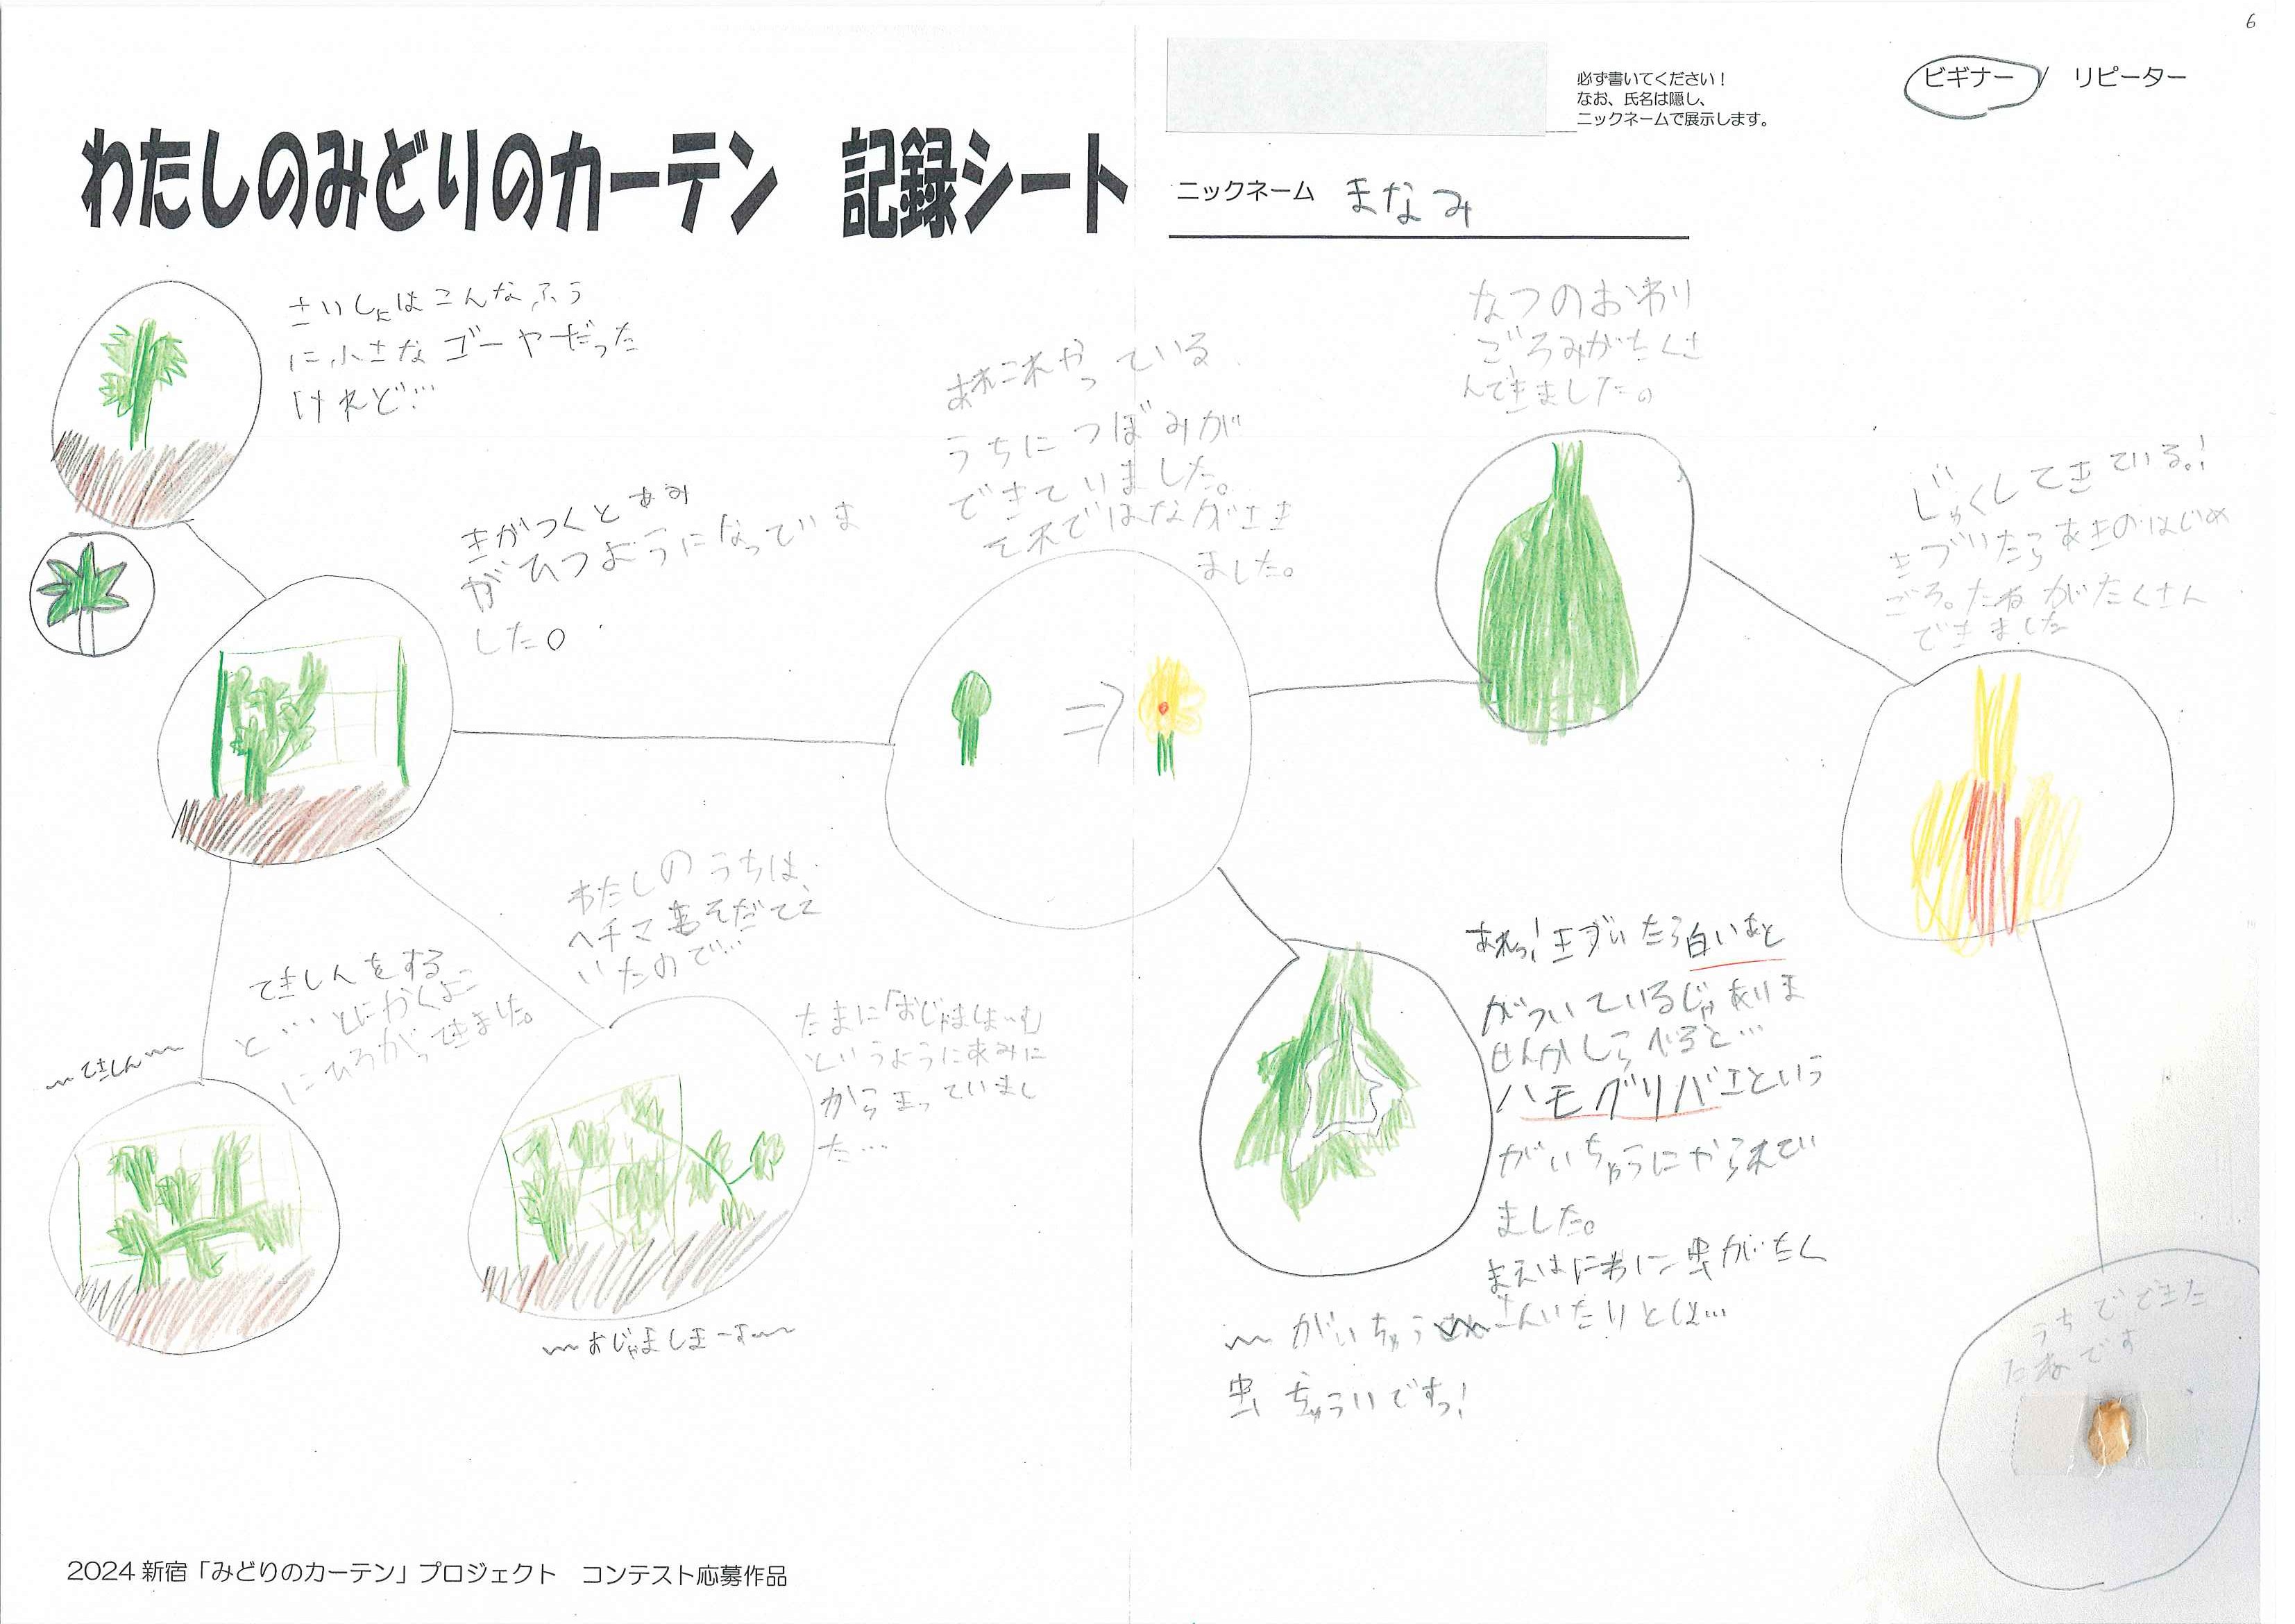 6
必ず書いてください！
なお、氏名は隠し、
ニックネームで展示します。
ビギナー / リピーター
わたしのみどりのカーテン 記録シート
ニックネーム まなみ
さいしょはこんなふう
に小さなゴーヤだった
けれど…
きがつくとあみ
がひつようになっていま
した。
あれこれやっている
うちにつぼみが
できていました。
それではながさき
ました。
なつのおわり
ごろみがたくさ
んできました。
じゅくしてきている!
きづいたらあきのはじめ
ごろ。たねがたくさん
できました
てきしんをする
と…とにかくよこ
にひろがってきました。
〜てきしん〜
わたしのうちは、
ヘチマもそだてて
いたので…
たまに「おじゃましまーす」
というようにあみに
からまっていまし
た…
〜おじゃましまーす〜
あれっ!きづいたら白いあと
がついているじゃありま
せんかしらべると…
ハモグリバエという
がいちゅうにやられてい
ました。
まえはにわに虫がたく
さんいたりとは…
〜がいちゅう
虫ちゅういですっ!
うちでできた
たねです
2024 新宿「みどりのカーテン」プロジェクト コンテスト応募作品